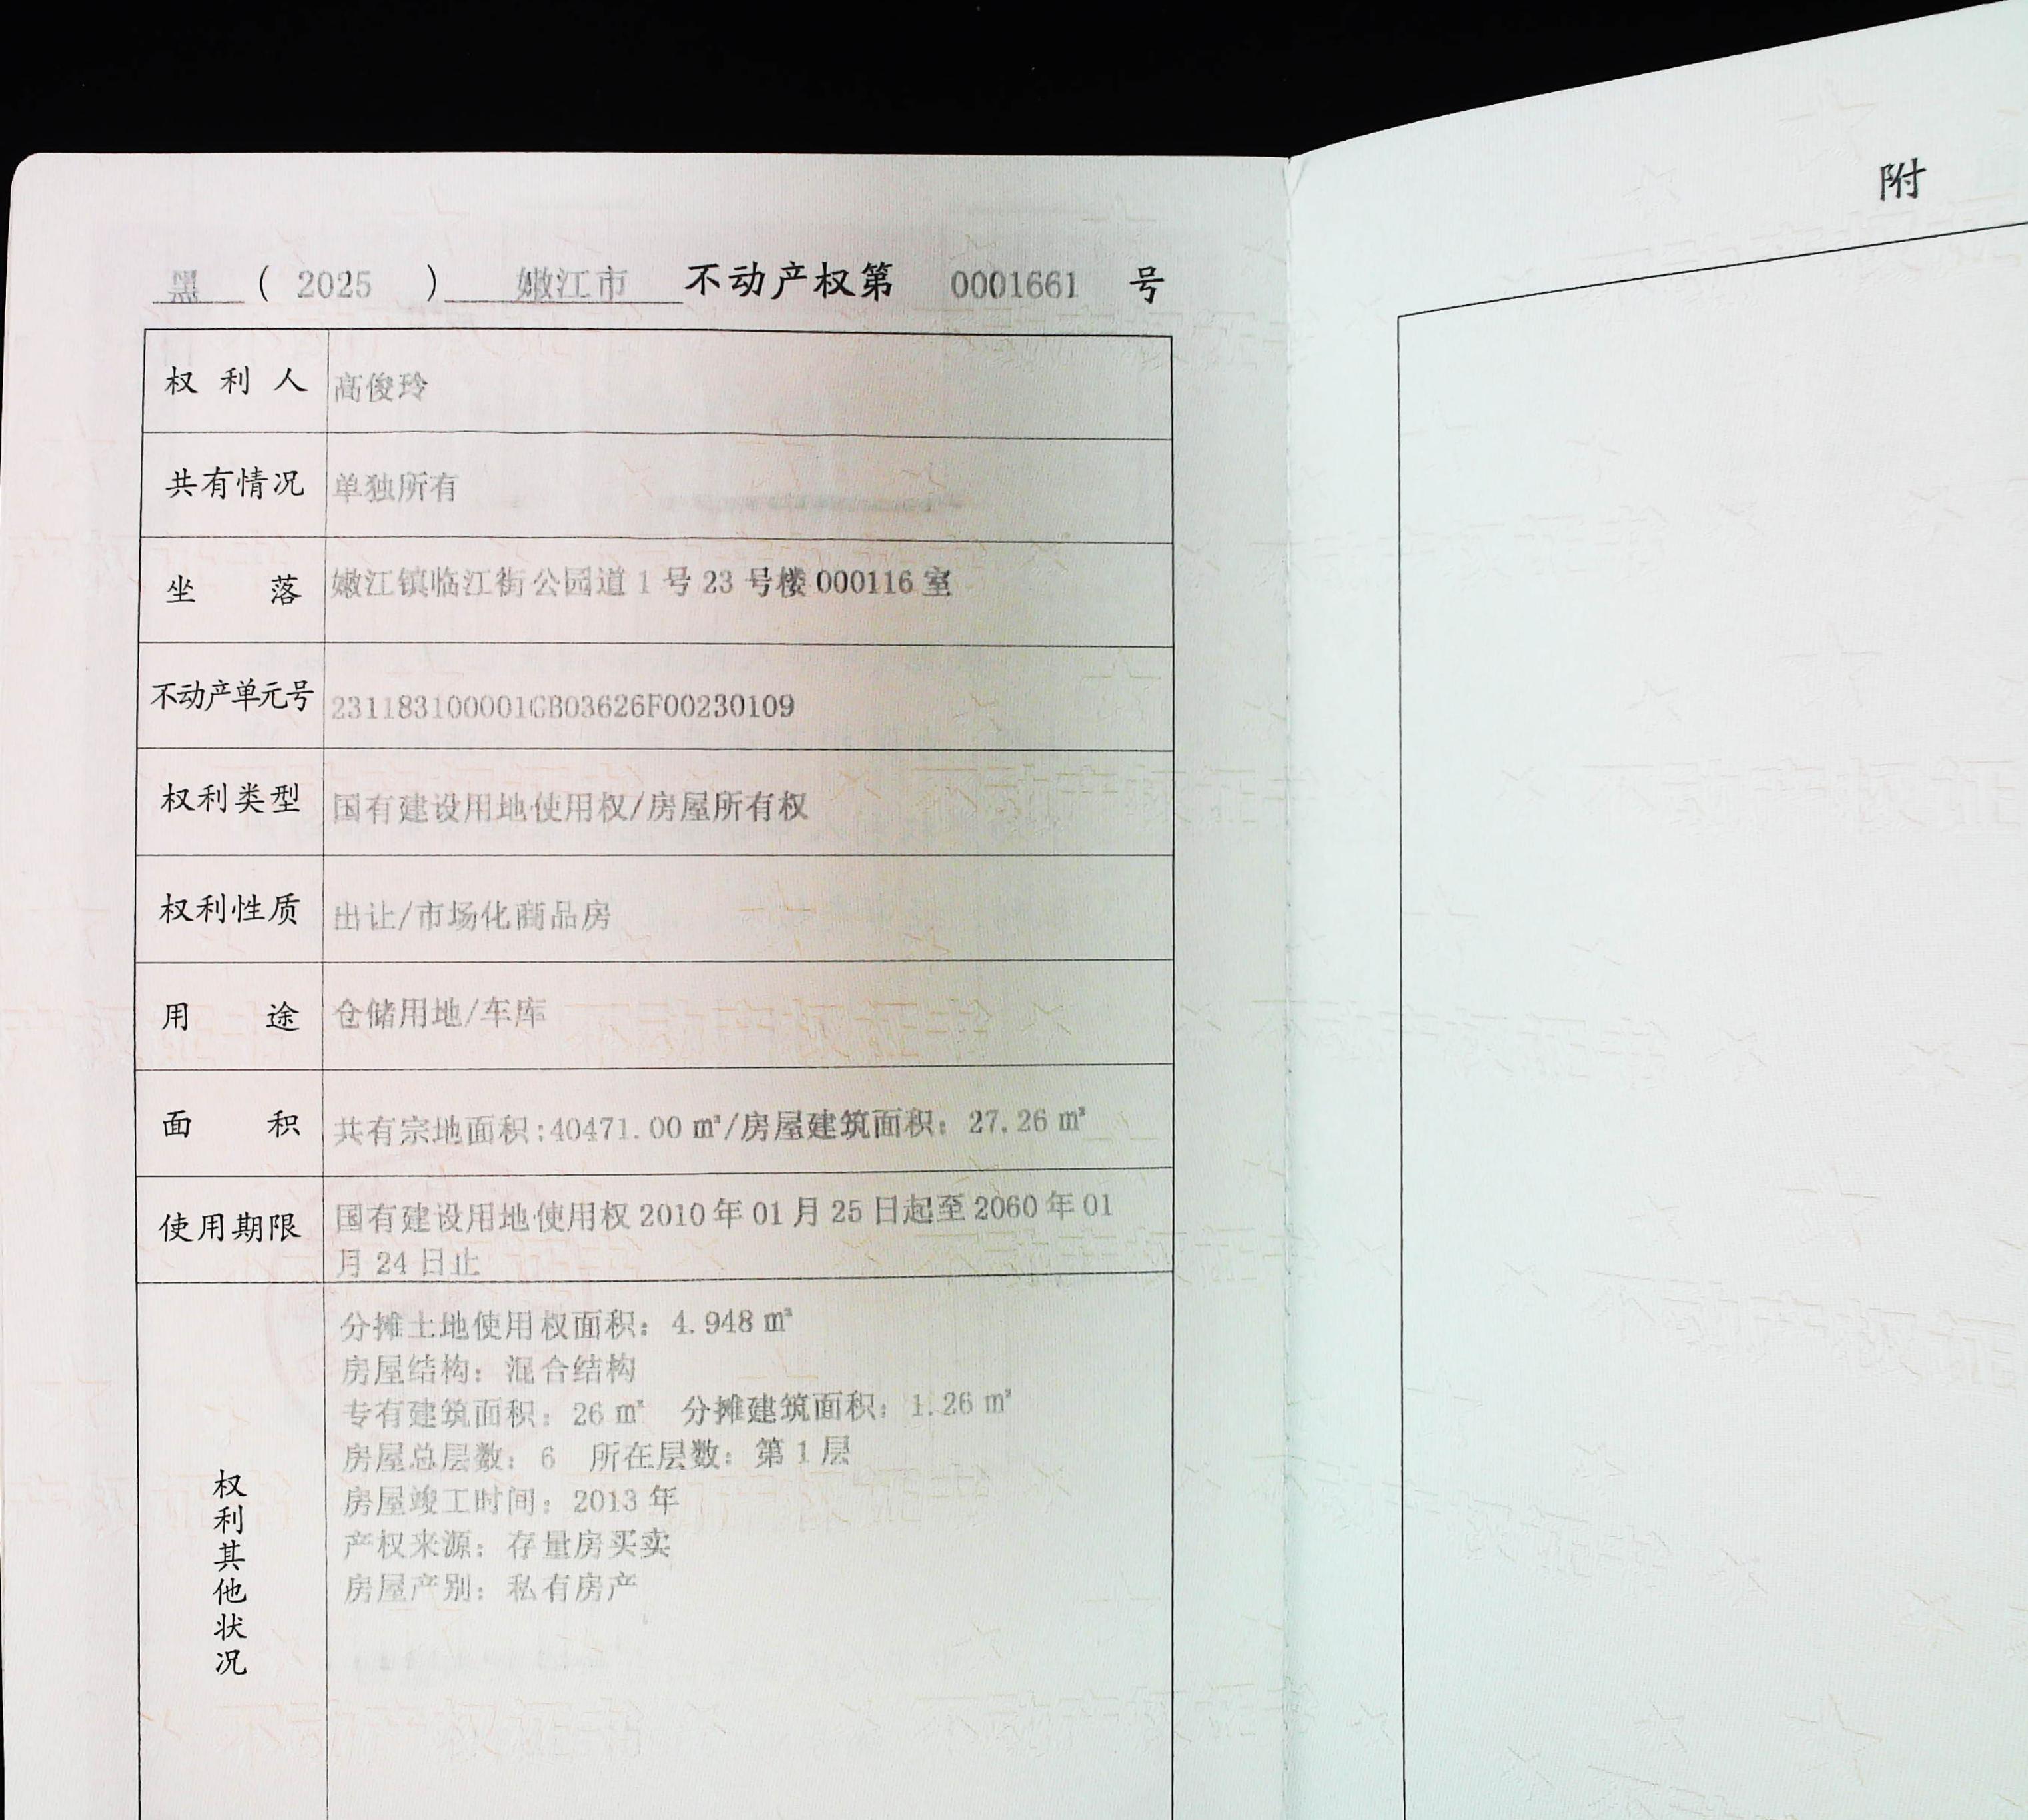 黑 ( 2025 ) 嫩江市 不动产权第 0001661 号
权利人 高俊玲
共有情况 单独所有
坐落 嫩江镇临江街公园道1号23号楼000116室
不动产单元号 231183100001GB03626F00230109
权利类型 国有建设用地使用权/房屋所有权
权利性质 出让/市场化商品房
用途 仓储用地/车库
面积 共有宗地面积:40471.00㎡/房屋建筑面积：27.26㎡
使用期限 国有建设用地使用权2010年01月25日起至2060年01
月24日止
权利其他状况
分摊土地使用权面积：4.948㎡
房屋结构：混合结构
专有建筑面积：26㎡ 分摊建筑面积：1.26㎡
房屋总层数：6 所在层数：第1层
房屋竣工时间：2013年
产权来源：存量房买卖
房屋产别：私有房产
附